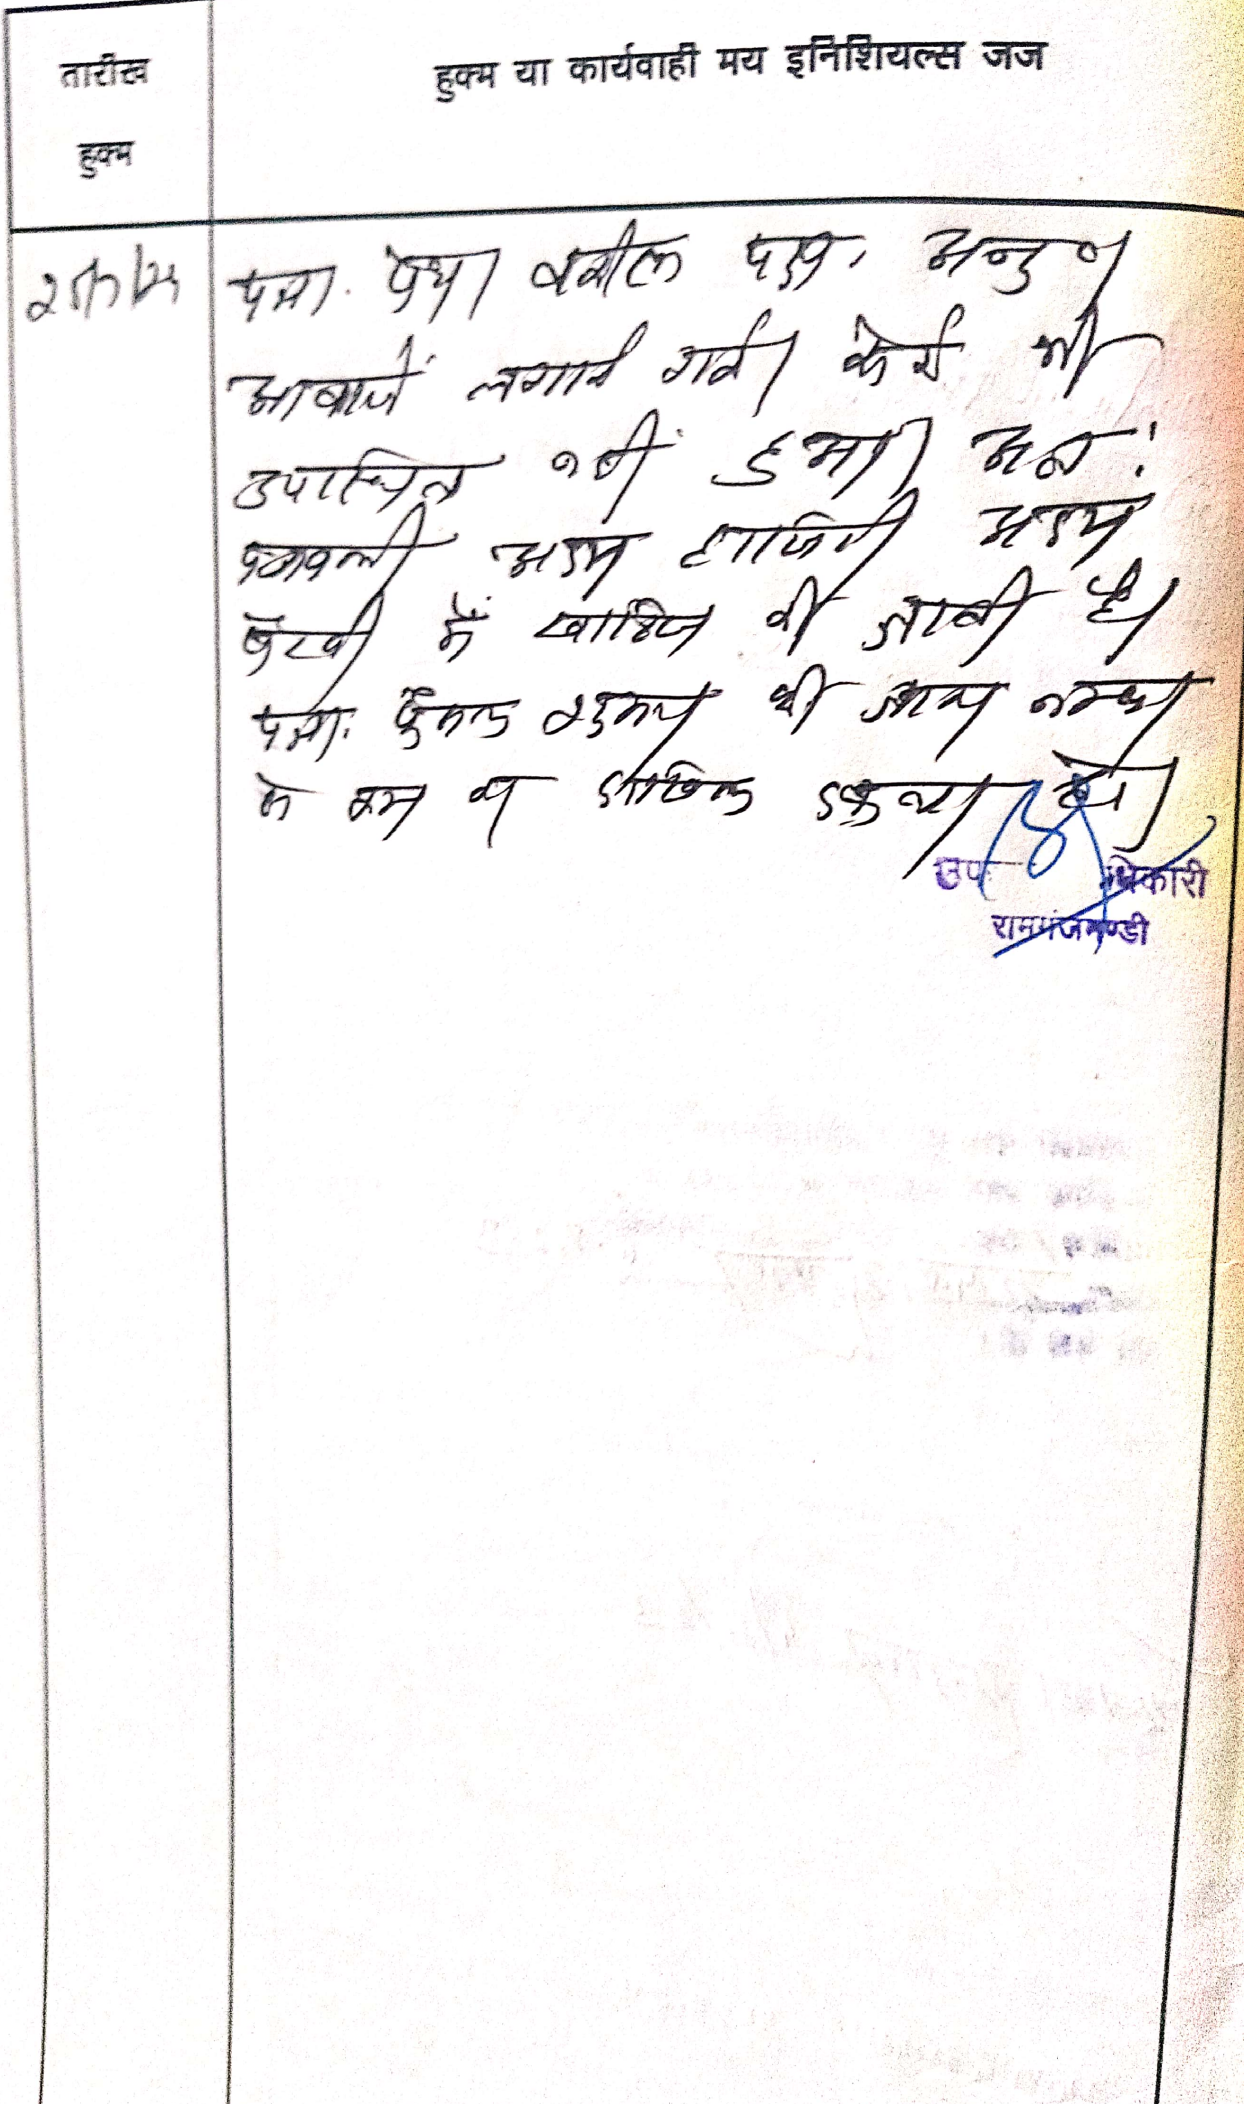 तारीख
हुक्म
हुक्म या कार्यवाही मय इनिशियल्स जज
पत्रा. पेश। वकील पक्ष. अनु०।
आवाजें लगाई गई। कोई भी
उपस्थित नहीं हुआ। अतः
पत्रावली अदम हाजिरी अदम
पैरवी में खारिज की जाती है।
पत्रा. फैसल शुमार की जाय नम्बर
से कम व दाखिल दफ्तर हो।
उप धिकारी
रामगंजमण्डी